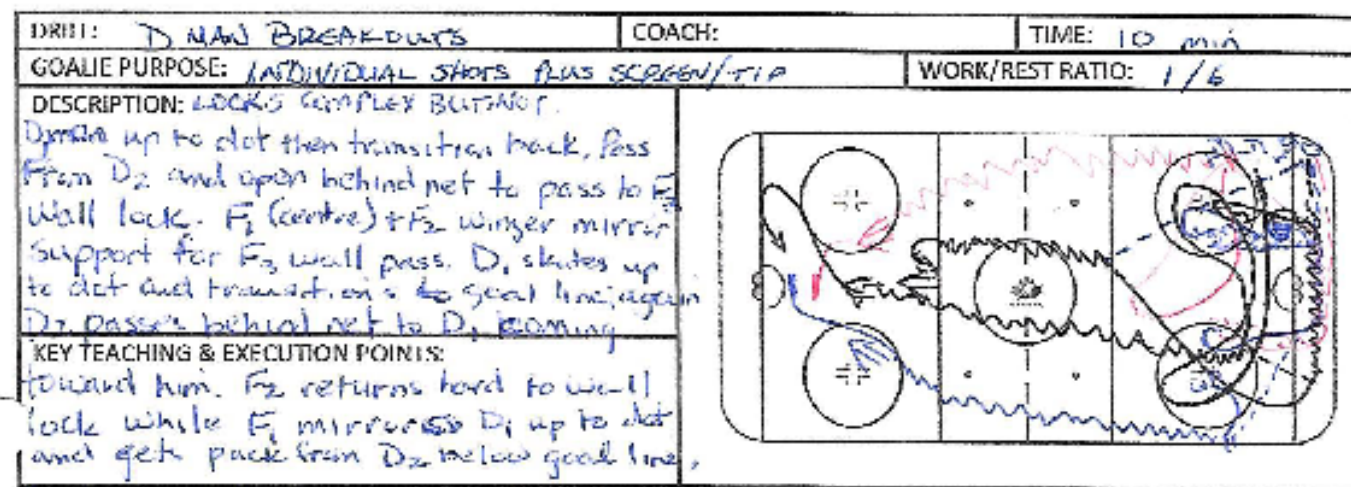 DRILL: D MAN BREAKOUTS COACH: TIME: 10 min
GOALIE PURPOSE: INDIVIDUAL SHOTS PLUS SCREEN/TIP WORK/REST RATIO: 1/6
DESCRIPTION: LOOKS COMPLEX BUT NOT.
Dman up to dot then transition back. Pass
From D2 and open behind net to pass to F3
Wall lock. F1 (centre) + F2 winger mirror
Support for F3 wall pass. D1 skates up
to dot and transitions to goal line, again
D2 passes behind net to D1 coming
KEY TEACHING & EXECUTION POINTS:
toward him. F2 returns hard to wall
lock while F1 mirrors D1 up to dot
and gets puck from D2 below goal line.